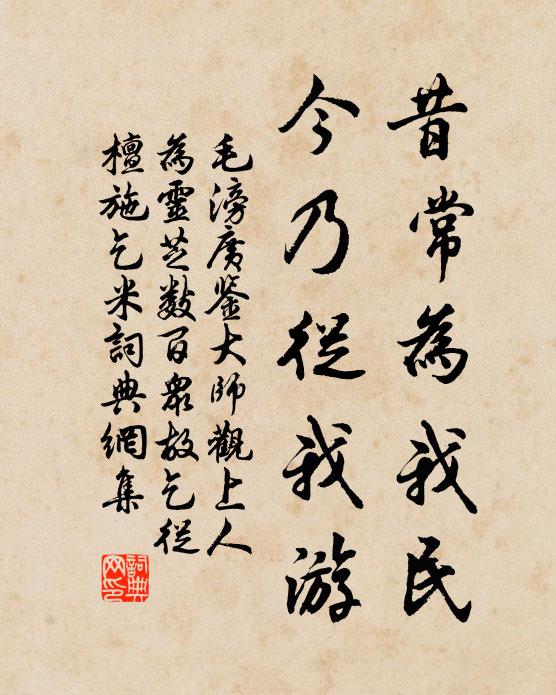 昔常為我民
今乃從我游
毛滂廣鉴大師觀上人
為靈芝數百眾故乞從
檀施乞米詞典網集
詞典网印